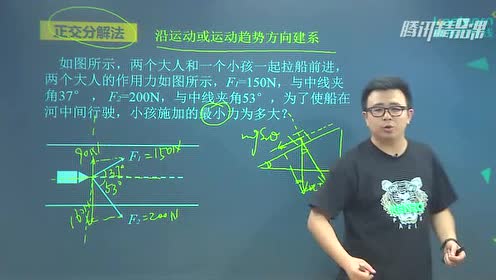 腾讯精品课
正交分解法
沿运动或运动趋势方向建系
如图所示，两个大人和一个小孩一起拉船前进，
两个大人的作用力如图所示，F₁=150N，与中线夹
角37°，F₂=200N，与中线夹角53°，为了使船在
河中间行驶，小孩施加的最小力为多大？
90N
F₁=150N
37°
53°
F₂=200N